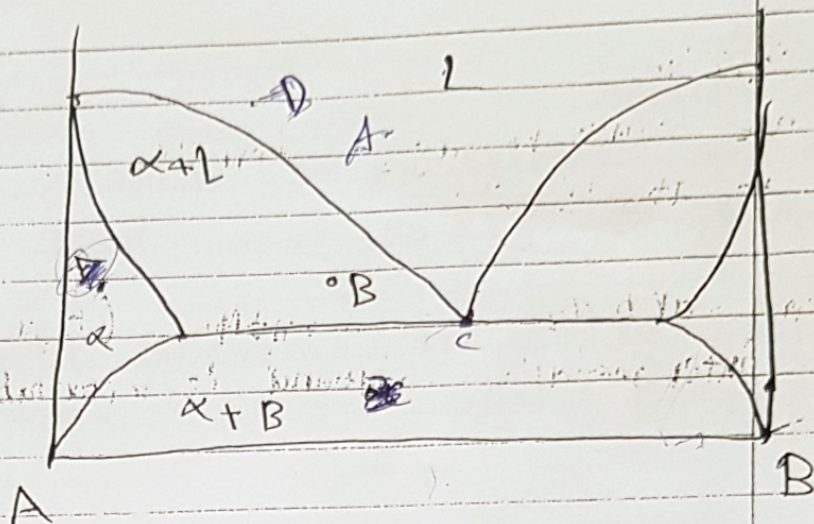 L
D
A
α+L
B
α
C
α + B
A
B